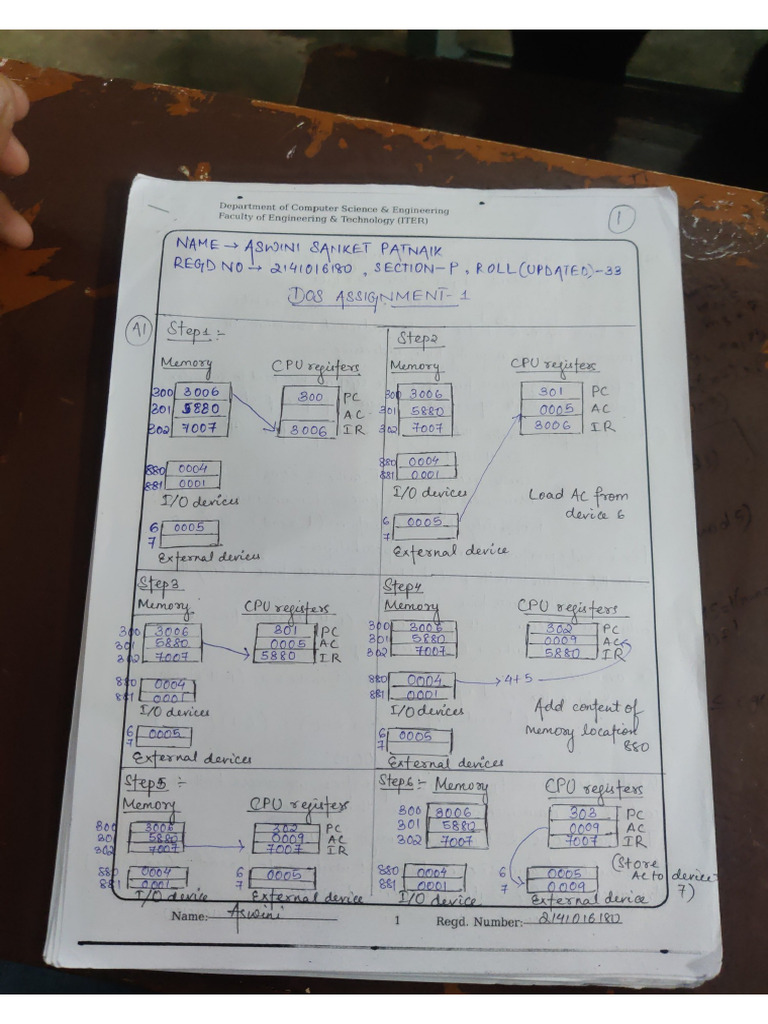 Department of Computer Science & Engineering
Faculty of Engineering & Technology (ITER)
1
NAME → ASWINI SANKET PATNAIK
REGD NO → 2141016180 , SECTION-P, ROLL (UPDATED)-33
DOS ASSIGNMENT-1
A1
Step1:-
Memory CPU registers
300 3006 300 PC
301 5880 AC
302 7007 3006 IR
880 0004
881 0001
I/O devices
6 0005
7
External devices
Step2
Memory CPU registers
300 3006 301 PC
301 5880 0005 AC
302 7007 3006 IR
880 0004
881 0001
I/O devices
Load AC from
device 6
6 0005
7
External device
Step3
Memory CPU registers
300 3006 301 PC
301 5880 0005 AC
302 7007 5880 IR
880 0004
881 0001
I/O devices
6 0005
7
External devices
Step4
Memory CPU registers
300 3006 302 PC
301 5880 0009 AC
302 7007 5880 IR
880 0004 → 4+5
881 0001
I/O devices
Add content of
Memory location
880
6 0005
7
External devices
Step5 :-
Memory CPU registers
300 3006 302 PC
301 5880 0009 AC
302 7007 7007 IR
880 0004 6 0005
881 0001 7
I/O device External device
Step6:- Memory CPU registers
300 3006 303 PC
301 5880 0009 AC
302 7007 7007 IR
(Store
AC to device
7)
880 0004 6 0005
881 0001 7 0009
I/O devices External device
Name: Aswini 1 Regd. Number: 2141016180